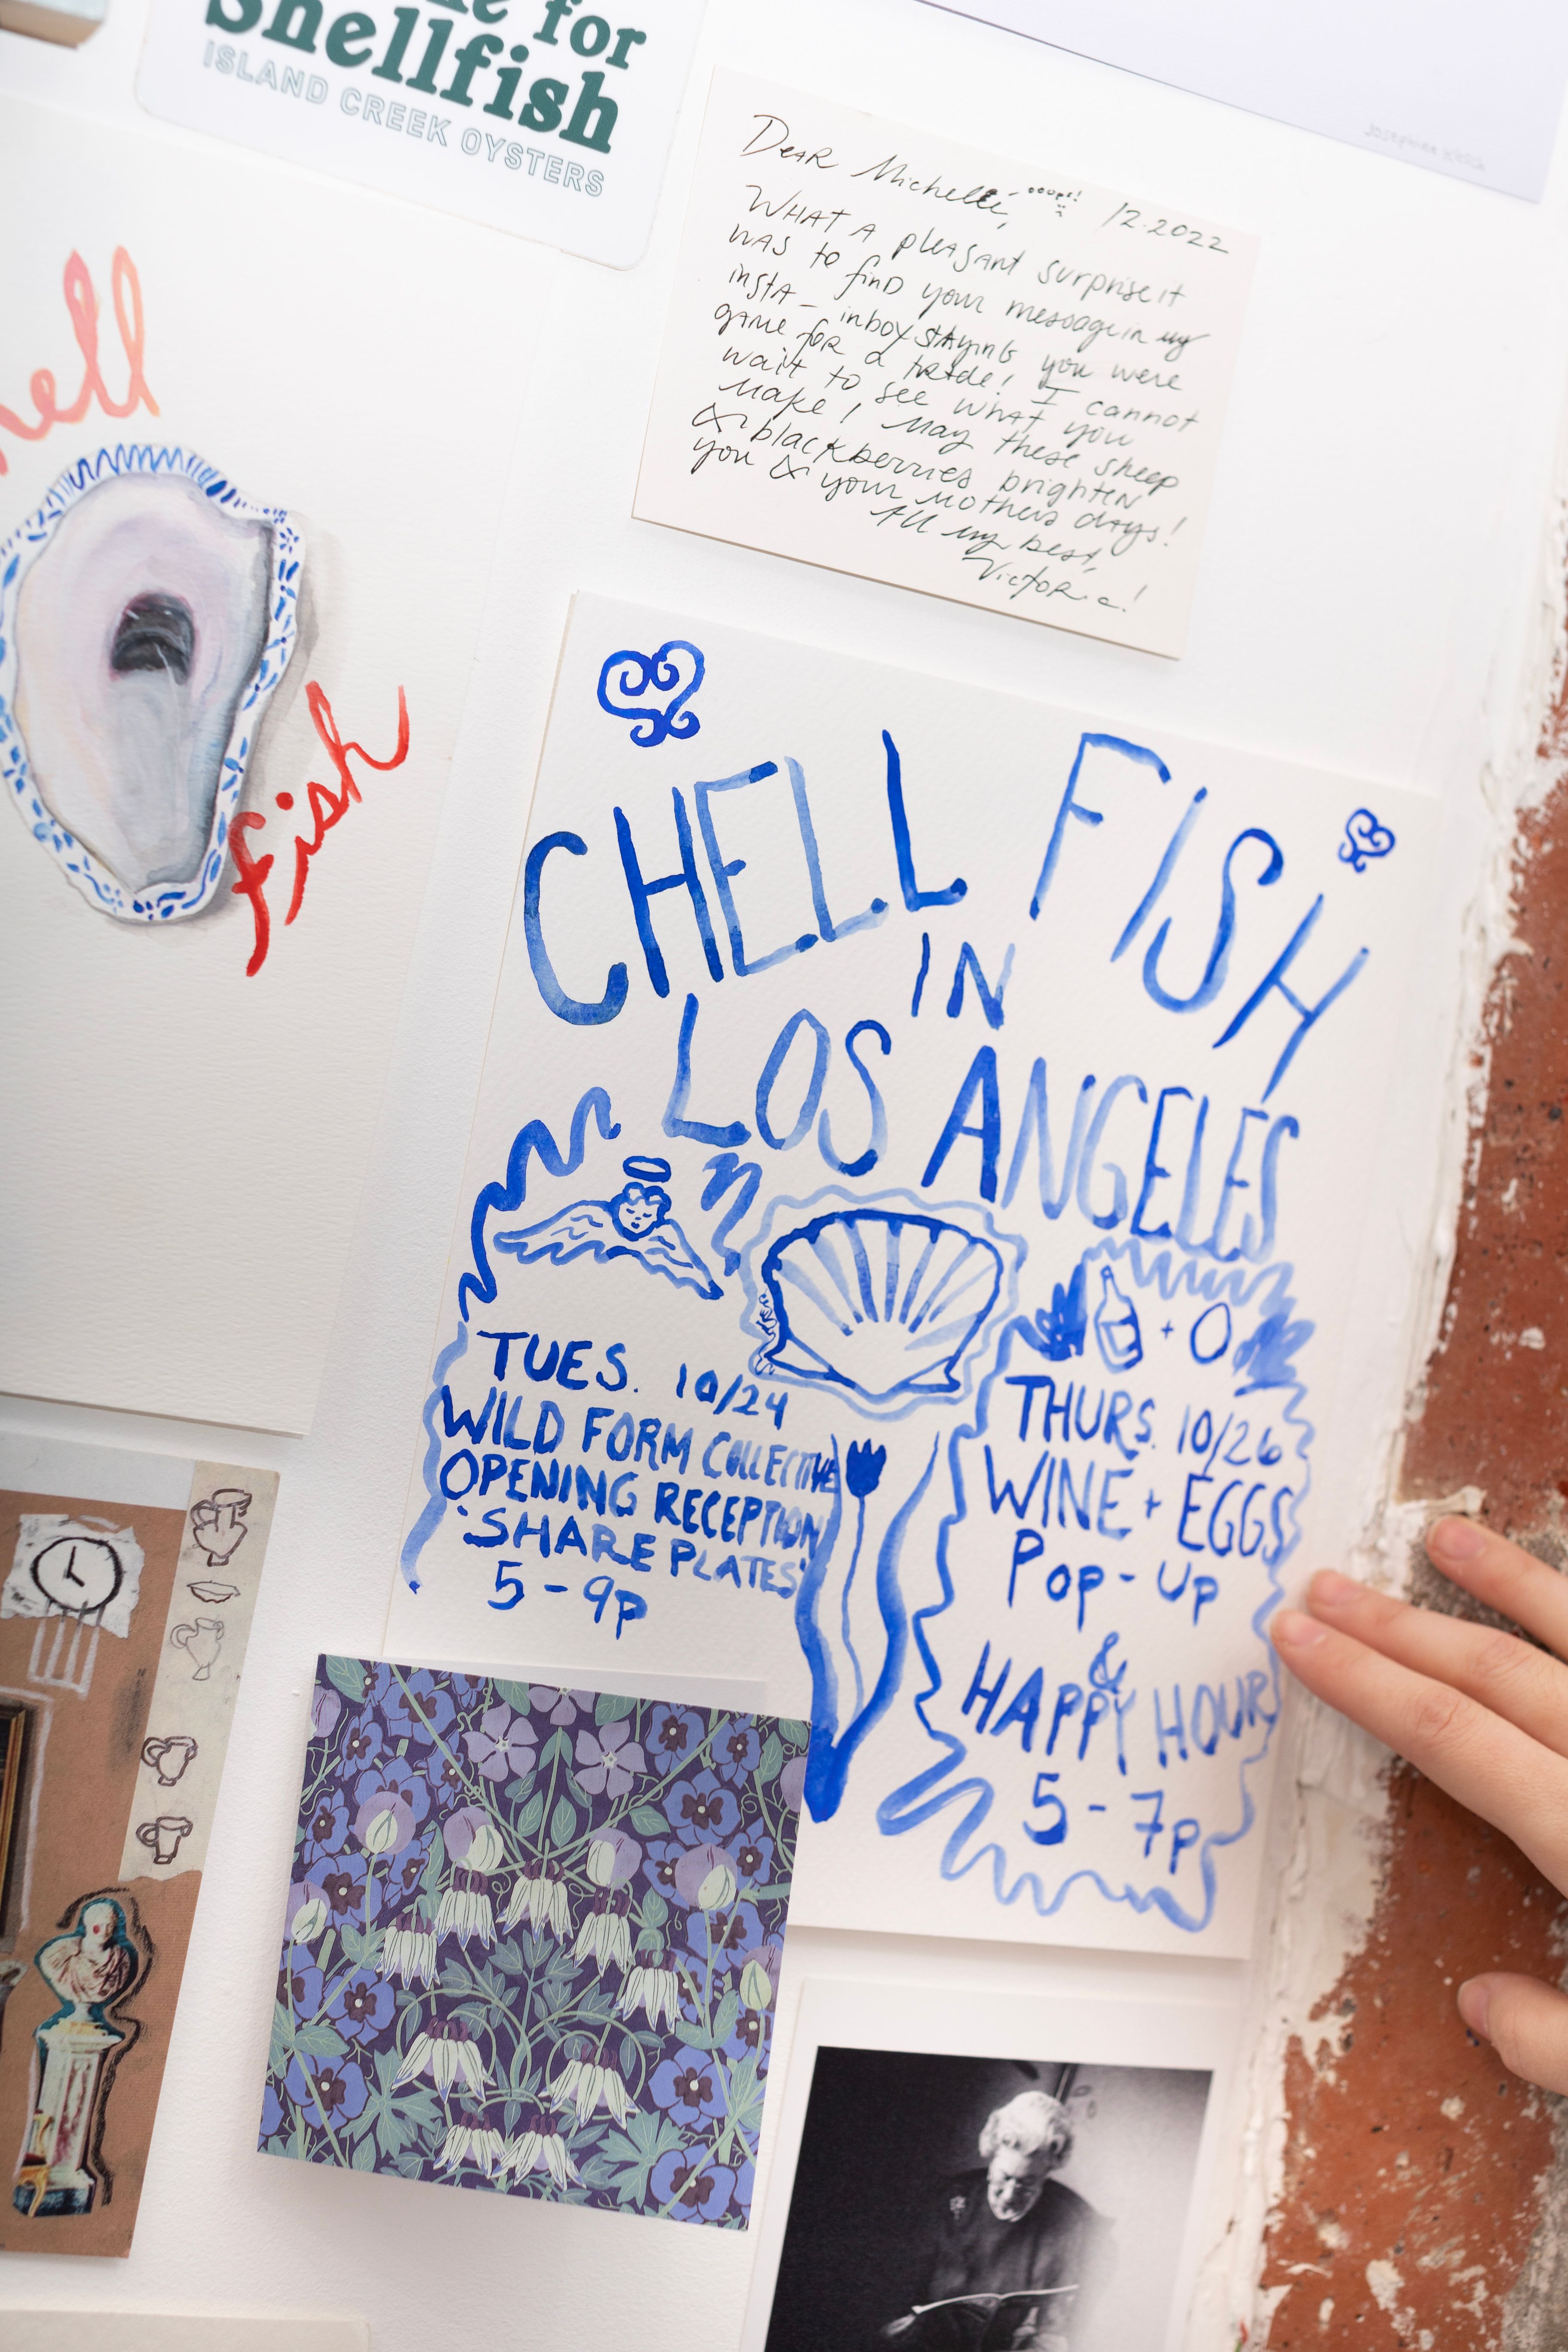 for
Shellfish
ISLAND CREEK OYSTERS
Dear Michelle, ooops! 12.2022
What a pleasant surprise it
was to find your message in my
insta-inbox staying you were
game for a trade! I cannot
wait to see what you
make! May these sheep
& blackberries brighten
you & your mothers days!
All my best,
Victoria!
hell
fish
CHELL FISH
IN
LOS ANGELES
TUES. 10/24
WILD FORM COLLECTIVE
OPENING RECEPTION
'SHARE PLATES'
5-9p
+ O
THURS. 10/26
WINE + EGGS
POP-UP
&
HAPPY HOUR
5-7p